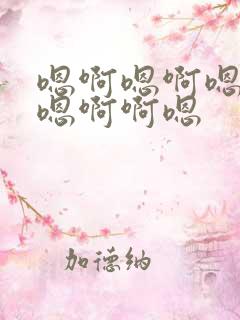 嗯啊嗯啊嗯
嗯啊啊嗯
加德纳